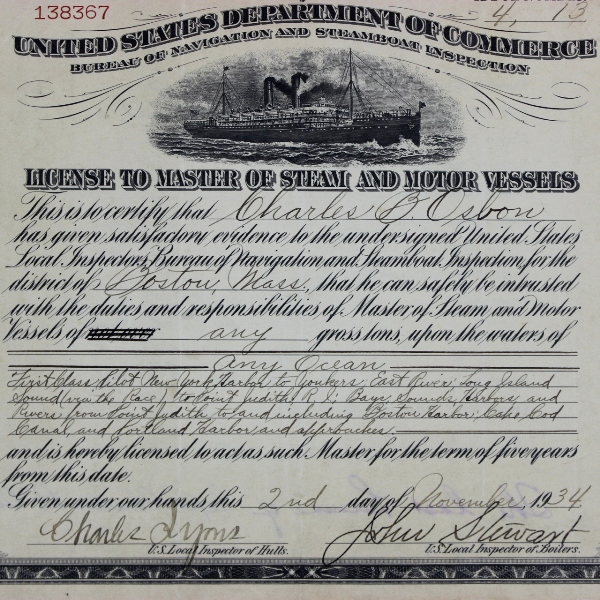 138367
4, 13
UNITED STATES DEPARTMENT OF COMMERCE
BUREAU OF NAVIGATION AND STEAMBOAT INSPECTION
LICENSE TO MASTER OF STEAM AND MOTOR VESSELS
This is to certify that Charles B. Osbon
has given satisfactory evidence to the undersigned United States
Local Inspectors, Bureau of Navigation and Steamboat Inspection, for the
district of Boston, Mass., that he can safely be intrusted
with the duties and responsibilities of Master of Steam and Motor
Vessels of any gross tons, upon the waters of
Any Ocean
First Class Pilot New York Harbor to Yonkers, East River, Long Island
Sound (via the Race) to Point Judith, R.I.; Bays, Sounds, Harbors, and
Rivers from Point Judith to and including Boston Harbor, Cape Cod
Canal and Portland Harbor and approaches.
and is hereby licensed to act as such Master for the term of five years
from this date.
Given under our hands this 2nd day of November, 1934
Charles Lyons John Stewart
U.S. Local Inspector of Hulls. U.S. Local Inspector of Boilers.